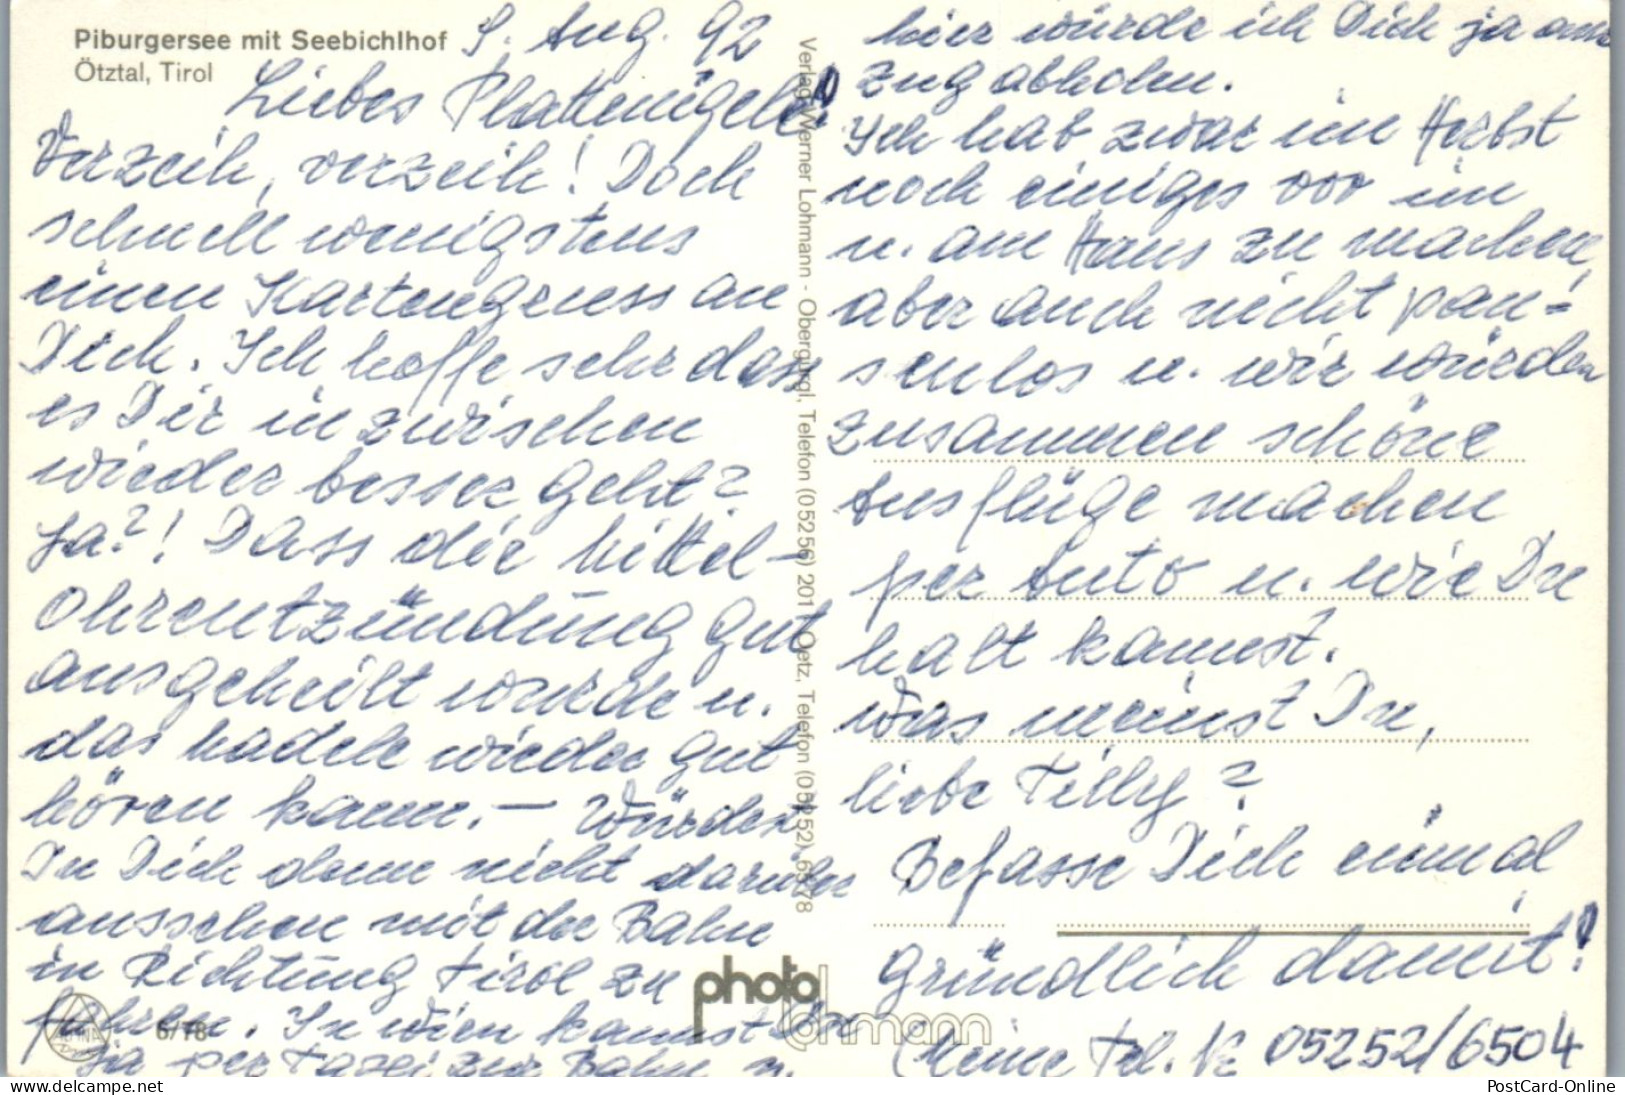 Piburgersee mit Seebichlhof
Ötztal, Tirol
9. Aug. 92
Liebes Plattenigele!
Verzeih, verzeih! Doch
schnell wenigstens
einen Kartengruss an
Dich. Ich hoffe sehr dass
es Dir inzwischen
wieder besser geht?
Ja?! Dass die Mittel-
ohrentzündung gut
ausgeheilt wurde u.
das Madele wieder gut
hören kann. – Würdest
Du Dich denn nicht darüber
aussehen mit der Bahn
in Richtung Tirol zu
fahren. In Wien kannst Du
ja per Taxi zur Bahn u.
hier würde ich Dich ja am
Zug abholen.
Ich hab zwar im Herbst
noch einiges vor im
u. am Haus zu machen,
aber auch nicht pau-
senlos u. wir würden
zusammen schöne
Ausflüge machen
per Auto u. wie Du
halt kannst.
Was meinst Du,
liebe Tilly?
Befasse Dich einmal
gründlich damit!
Meine Tel. Nr 05252/6504
Verlag Werner Lohmann - Obergurgl, Telefon (05256) 201 Oetz, Telefon (05252) 6178
photo
lohmann
ALPINA
6/78
PostCard-Online
www.delcampe.net